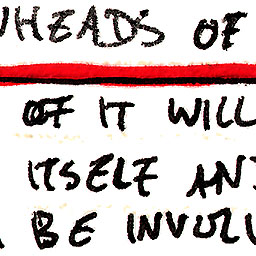 HEADS OF
OF IT WILL
ITSELF AN
BE INVOL